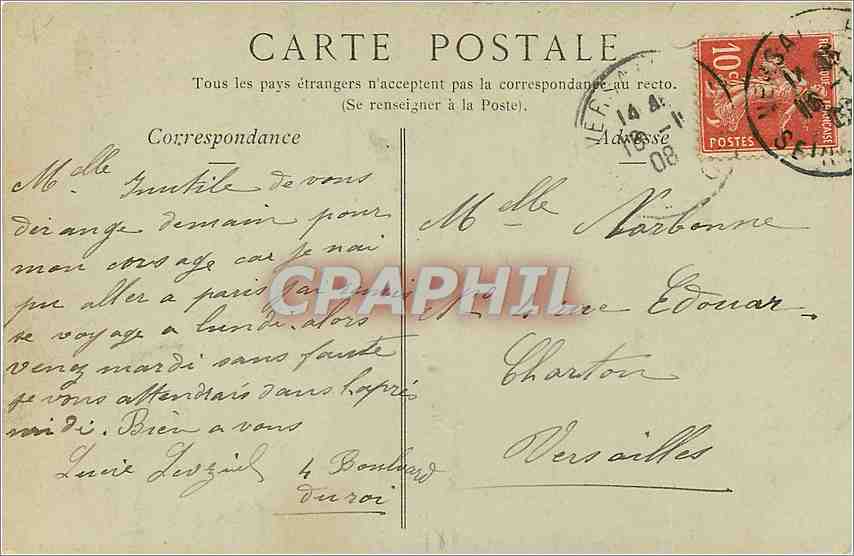 CARTE POSTALE
Tous les pays étrangers n'acceptent pas la correspondance au recto.
(Se renseigner à la Poste).
Correspondance
Adresse
10c
REPUBLIQUE FRANCAISE
POSTES
14
16 - 1
08
Mlle Inutile de vous
dérange demain pour
mon corsage car je nai
pu aller a paris j'ai remis
se voyage a lundi. alors
venez mardi sans faute
je vous attendrais dans laprès
midi. Bièn a vous
Lucie
4 Boulvard
du roi
Mlle Narbonne
No 4 rue Edouar
Charton
Versailles
CPAPHIL